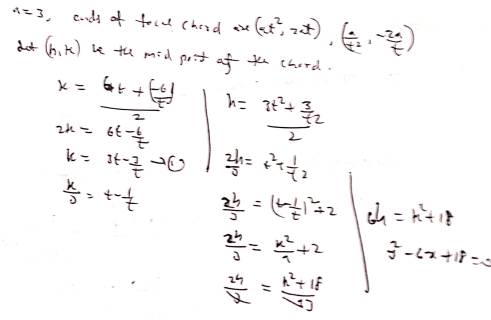 a=3, ends of focal chord are (at², 2at), (a/t², -2a/t)
Let (h,k) be the mid point of the chord.
k = (6t + (-6/t))/2
2k = 6t - 6/t
k = 3t - 3/t → ①
k/3 = t - 1/t
h = (3t² + 3/t²)/2
2h/3 = t² + 1/t²
2h/3 = (t - 1/t)² + 2
2h/3 = k²/9 + 2
2h/3 = (k² + 18)/9
6h = k² + 18
y² - 6x + 18 = 0